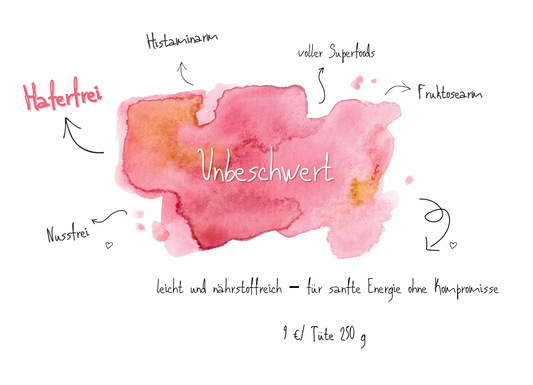 Histaminarm
voller Superfoods
Haferfrei
Fruktosearm
Unbeschwert
Nussfrei
leicht und nährstoffreich – für sanfte Energie ohne Kompromisse
9 €/ Tüte 250 g